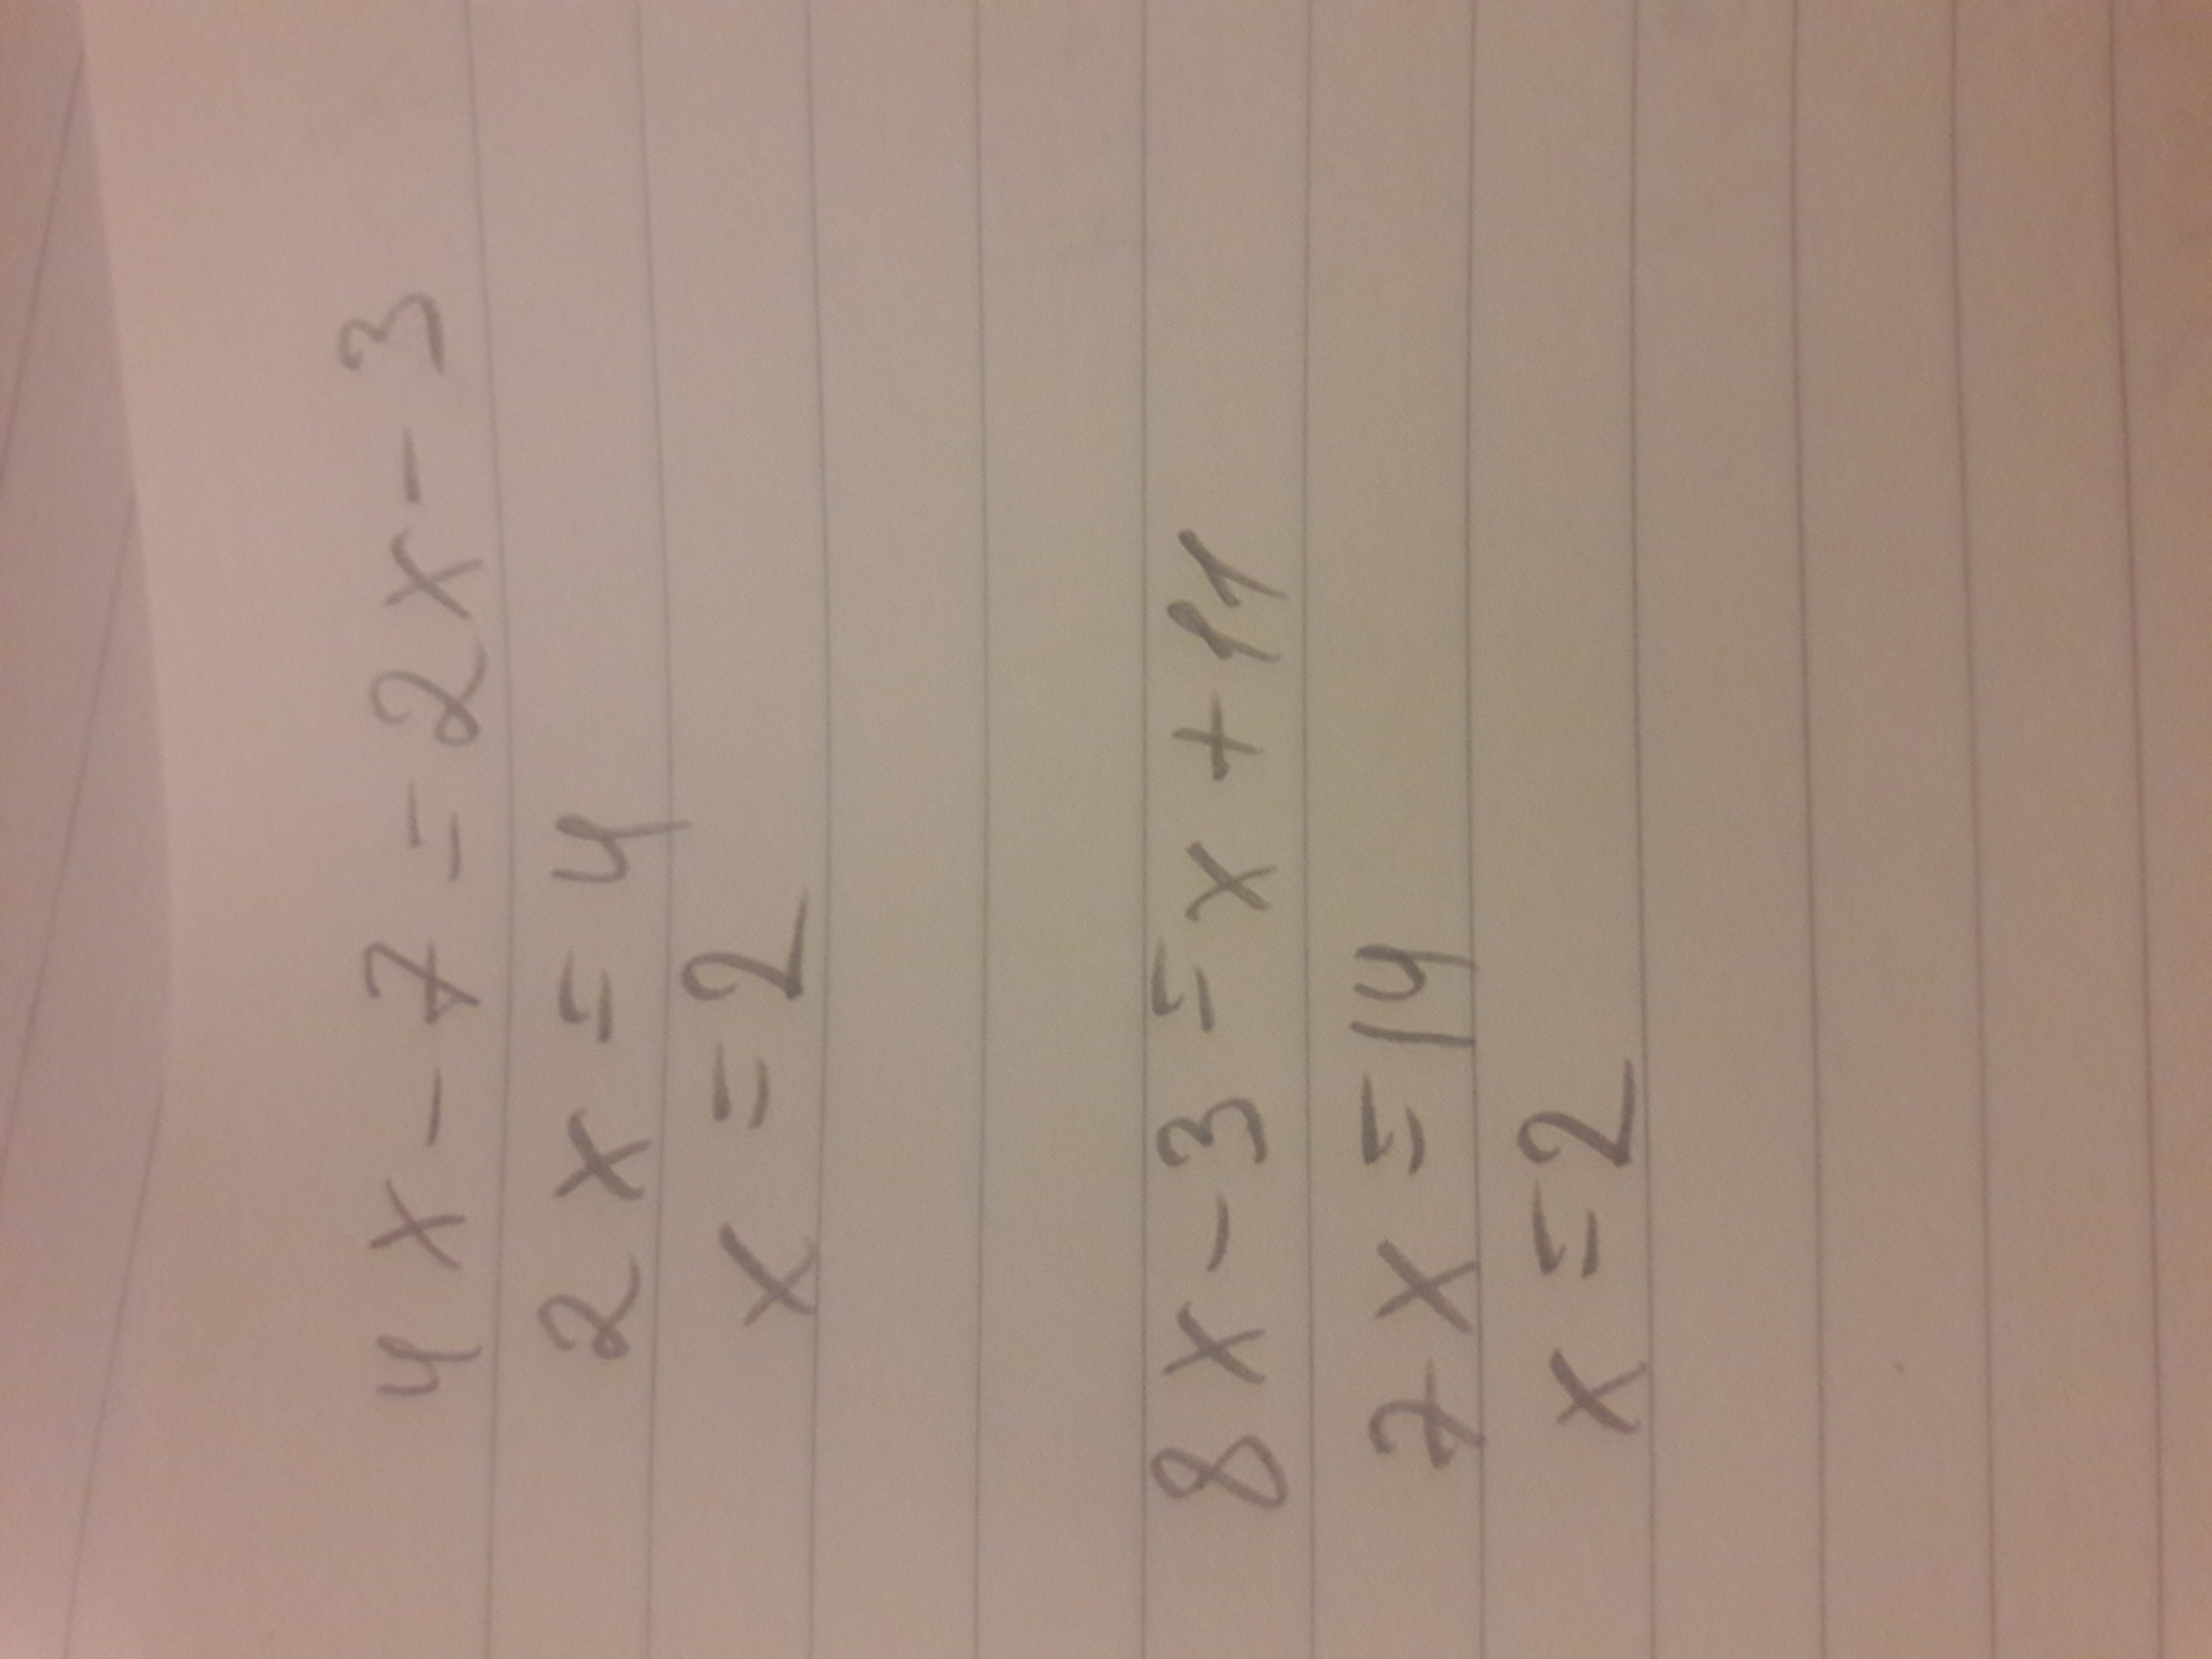 4x-7=2x-3
2x=4
x=2
8x-3=x+11
7x=14
x=2